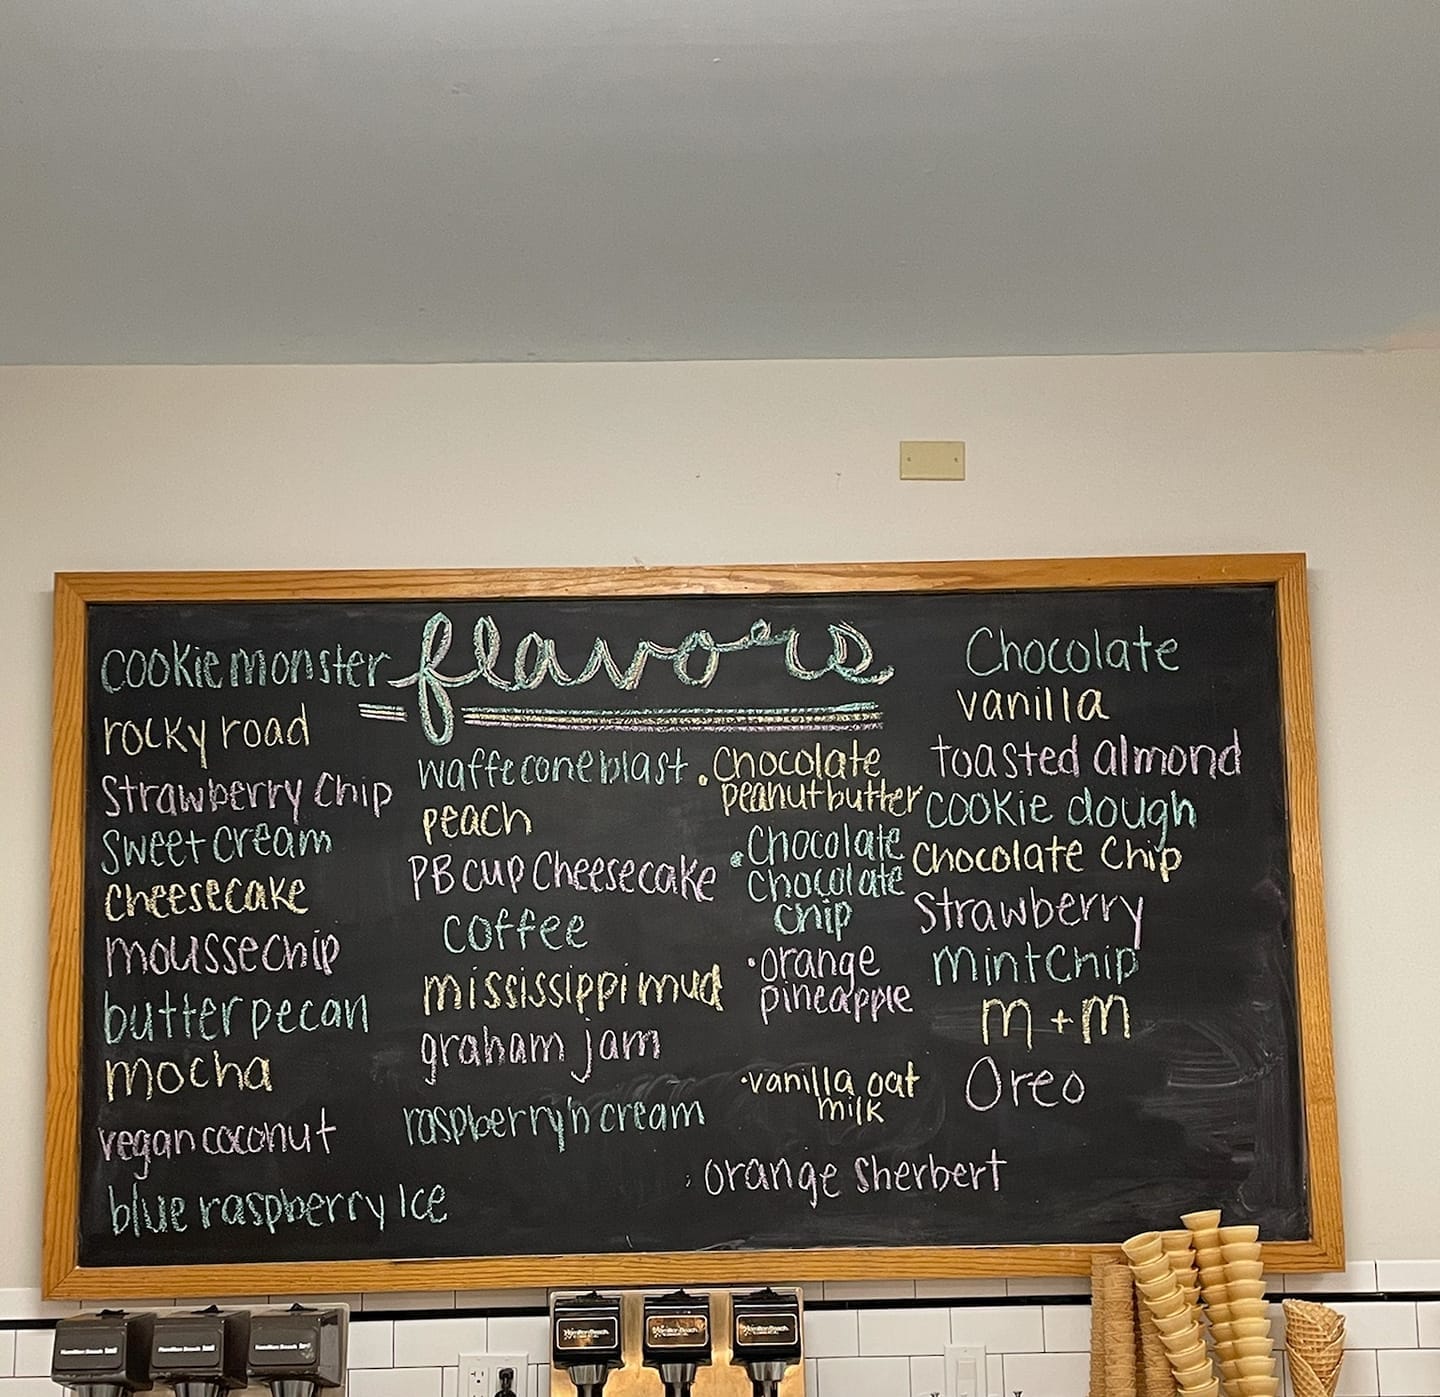 flavors
cookie monster
rocky road
Strawberry Chip
sweet cream
cheesecake
mousse chip
butter pecan
mocha
vegan coconut
blue raspberry Ice
waffe cone blast
peach
PB cup Cheesecake
coffee
mississippi mud
graham jam
raspberry 'n cream
• Chocolate
peanut butter
• Chocolate
chocolate
chip
• orange
pineapple
• vanilla oat
milk
• orange sherbert
Chocolate
vanilla
toasted almond
cookie dough
Chocolate Chip
Strawberry
mint chip
m + m
Oreo
Hamilton Beach
Hamilton Beach
Hamilton Beach
Hamilton Beach
Hamilton Beach
Hamilton Beach